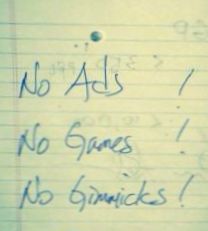 No Ads !
No Games !
No Gimmicks !